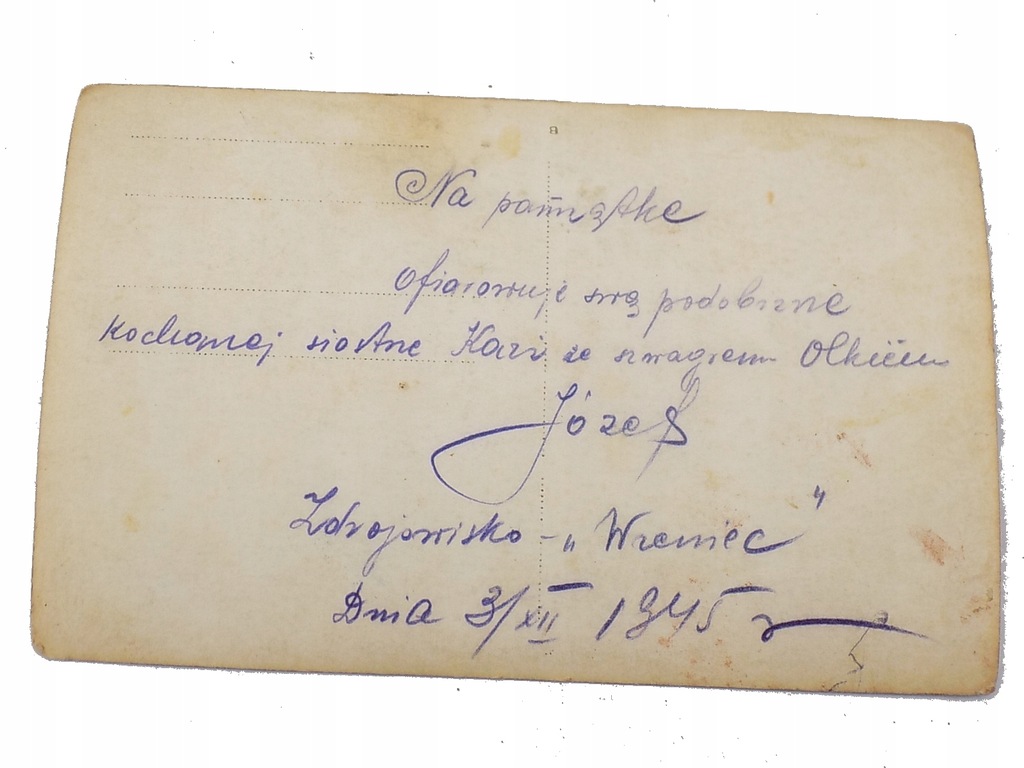 a
Na pamiątke
Ofiarowuje swą podobizne
kochanej siostrze Kazi ze szwagrem Olkiem
Józef
Zdrojowisko - „Wzeniec"
Dnia 3/XII 1945 r